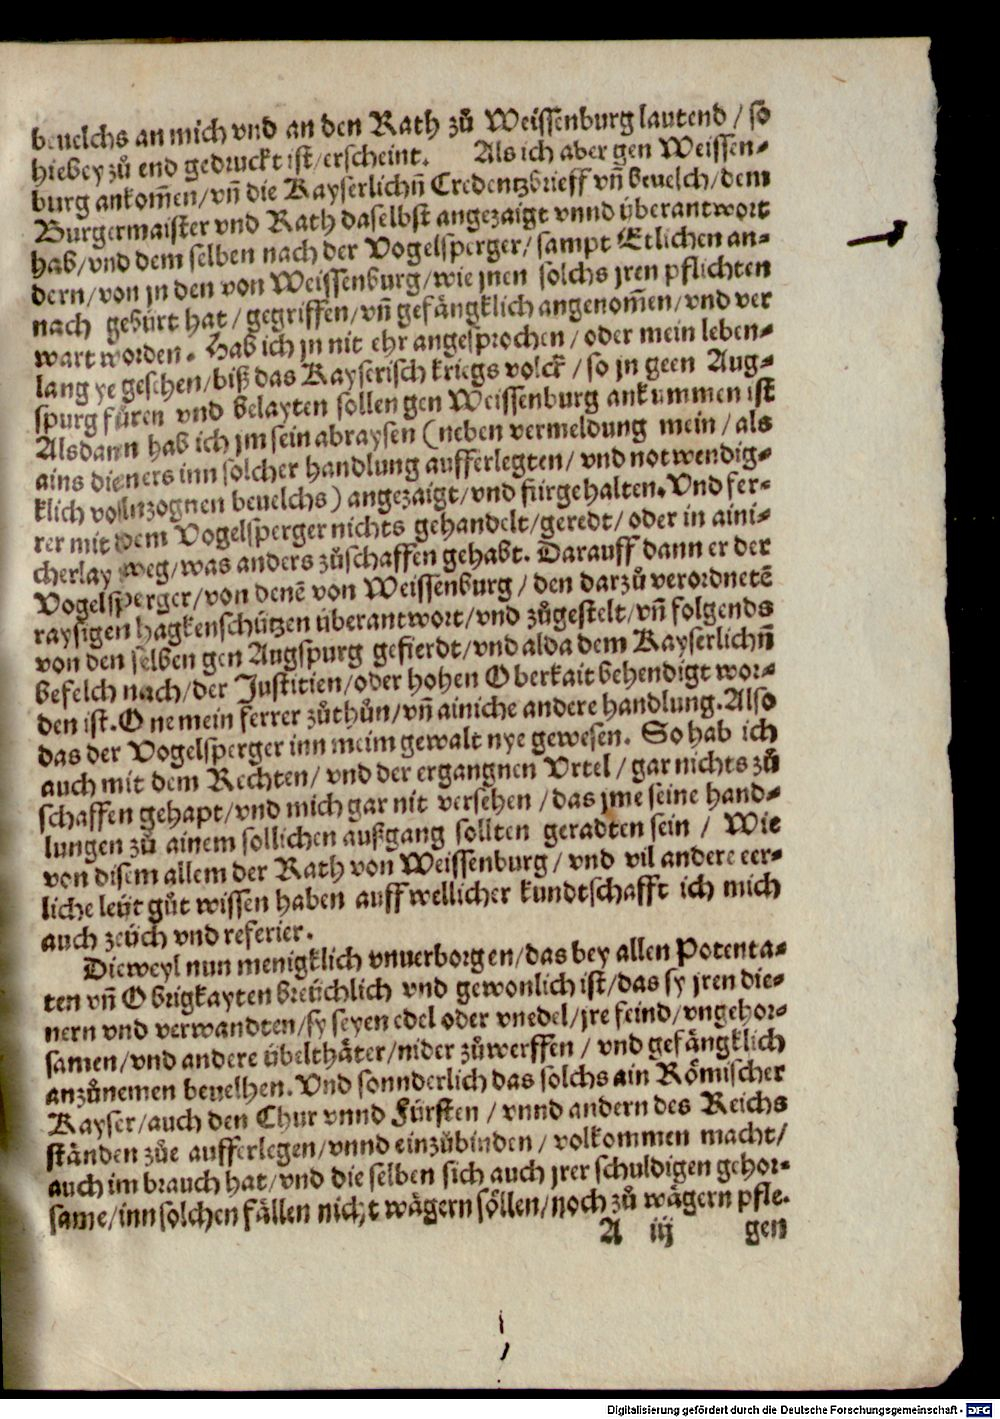 beuelchs an mich vnd an den Rath zů Weissenburg lautend / so
hiebey zů end gedruckt ist/erscheint. Als ich aber gen Weissen-
burg ankom̄en/vn̄ die Kayserlichn̄ Credentzbrieff vn̄ beuelch/dem
Burgermaister vnd Rath daselbst angezaigt vnnd überantwort
hab/vnd dem selben nach der Vogelsperger/sampt Etlichen an-
dern/von jn den von Weissenburg/wie jnen solchs jren pflichten
nach gebürt hat/gegriffen/vn̄ gefängklich angenom̄en/vnd ver
wart worden. Hab ich jn nit ehr angesprochen/oder mein leben-
lang ye gesehen/biß das Kayserisch kriegs volck/so jn geen Aug-
spurg füren vnd belayten sollen gen Weissenburg ankummen ist
Alsdann hab ich jm sein abraysen (neben vermeldung mein/als
ains dieners inn solcher handlung aufferlegten/vnd notwendig-
klich volnzognen beuelchs) angezaigt/vnd fürgehalten. Vnd fer-
rer mit dem Vogelsperger nichts gehandelt/geredt/oder in aini-
cherlay weg/was anders zůschaffen gehabt. Darauff dann er der
Vogelsperger/von denē von Weissenburg/den darzů verordnetē
raysigen hagkenschützen überantwort/vnd zůgestelt/vn̄ folgends
von den selben gen Augspurg gefierdt/vnd alda dem Kayserlichn̄
befelch nach/der Justitien/oder hohen Oberkait behendigt wor-
den ist. One mein ferrer zůthůn/vn̄ ainiche andere handlung. Also
das der Vogelsperger inn meim gewalt nye gewesen. So hab ich
auch mit dem Rechten/vnd der ergangnen Vrtel/gar nichts zů
schaffen gehapt/vnd mich gar nit versehen/das jme seine hand-
lungen zů ainem sollichen außgang sollten geradten sein / Wie
von disem allem der Rath von Weissenburg/vnd vil andere eer-
liche leüt gůt wissen haben auff wellicher kundtschafft ich mich
auch zeüch vnd referier.
Dieweyl nun menigklich vnuerborgen/das bey allen Potenta-
ten vn̄ Obrigkayten breüchlich vnd gewonlich ist/das sy jren die-
nern vnd verwandten/sy seyen edel oder vnedel/jre feind/vngehor-
samen/vnd andere übelthäter/nider zůwerffen/vnd gefängklich
anzůnemen beuelhen. Vnd sonnderlich das solchs ain Römischer
Kayser/auch den Chur vnnd Fürsten / vnnd andern des Reichs
ständen zůe aufferlegen/vnnd einzůbinden/volkommen macht/
auch im brauch hat/vnd die selben sich auch jrer schuldigen gehor-
same/inn solchen fällen nicht wägern söllen/noch zů wägern pfle-
A iij gen
Digitalisierung gefördert durch die Deutsche Forschungsgemeinschaft - DFG